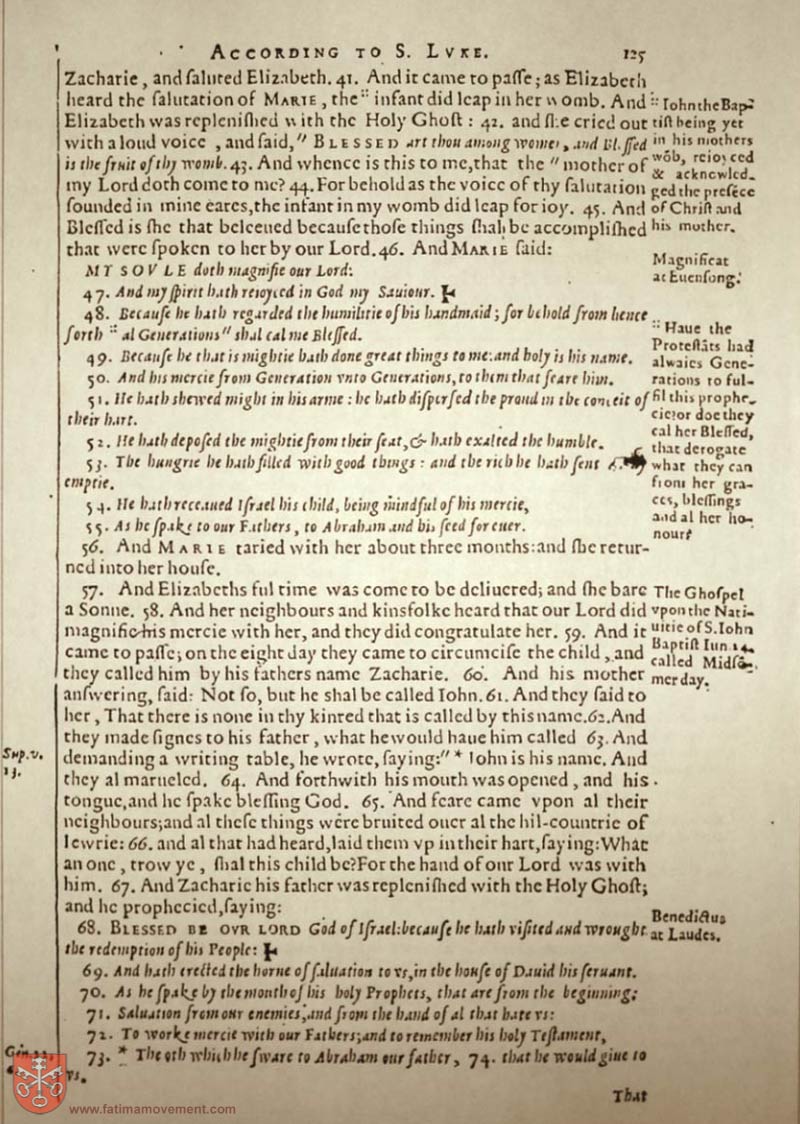 ACCORDING TO S. LVKE. 125
Zacharie, and saluted Elizabeth. 41. And it came to passe; as Elizabeth
heard the salutation of MARIE, the :: infant did leap in her womb. And
Elizabeth was replenished with the Holy Ghost: 42. and she cried out
with a loud voice, and said, " BLESSED art thou among women, and Blessed
is the fruit of thy womb. 43. And whence is this to me, that the " mother of
my Lord doth come to me? 44. For behold as the voice of thy salutation
sounded in mine eares, the infant in my womb did leap for ioy. 45. And
Blessed is she that beleeued because those things shal be accomplished
that were spoken to her by our Lord. 46. And MARIE said:
MY SOVLE doth magnifie our Lord:
47. And my spirit hath reioyced in God my Sauiour.
48. Because he hath regarded the humilitie of his handmaid; for behold from hence
forth :: al Generations " shal cal me Blessed.
49. Because he that is mightie hath done great things to me: and holy is his name.
50. And his mercie from Generation vnto Generations, to them that feare him.
51. He hath shewed might in his arme: he hath dispersed the proud in the conceit of
their hart.
52. He hath deposed the mightie from their seat, & hath exalted the humble.
53. The hungrie he hath filled with good things: and the rich he hath sent
emptie.
54. He hath receaued Israel his child, being mindful of his mercie,
55. As he spake to our Fathers, to Abraham and his seed for euer.
56. And MARIE taried with her about three months: and she retur-
ned into her house.
57. And Elizabeths ful time was come to be deliuered; and she bare
a Sonne. 58. And her neighbours and kinsfolke heard that our Lord did
magnifie his mercie with her, and they did congratulate her. 59. And it
came to passe; on the eight day they came to circumcise the child, and
they called him by his fathers name Zacharie. 60. And his mother
answering, said: Not so, but he shal be called Iohn. 61. And they said to
her, That there is none in thy kinred that is called by this name. 62. And
they made signes to his father, what he would haue him called 63. And
demanding a writing table, he wrote, saying: " * Iohn is his name. And
they al marueled. 64. And forthwith his mouth was opened, and his
tongue, and he spake blessing God. 65. And feare came vpon al their
neighbours; and al these things were bruited ouer al the hil-countrie of
Iewrie: 66. and al that had heard, laid them vp in their hart, saying: What
an one, trow ye, shal this child be? For the hand of our Lord was with
him. 67. And Zacharie his father was replenished with the Holy Ghost;
and he prophecied, saying:
68. BLESSED BE OVR LORD God of Israel: because he hath visited and wrought
the redemption of his People:
69. And hath erected the horne of saluation to vs, in the house of Dauid his seruant.
70. As he spake by the mouth of his holy Prophets, that are from the beginning;
71. Saluation from our enemies, and from the hand of al that hate vs:
72. To worke mercie with our Fathers; and to remember his holy Testament,
73. * The oth which he sware to Abraham our father, 74. that he would giue to
vs.
That
:: Iohn the Bap-
tist being yet
in his mothers
wõb, reioyced
& acknowled-
ged the presẽce
of Christ and
his mother.
Magnificat
at Euensong.
:: Haue the
Protestãts had
alwaies Gene-
rations to ful-
fil this prophe-
cie? or doe they
cal her Blessed,
that derogate
what they can
from her gra-
ces, blessings
and al her ho-
nour?
The Ghospel
vpon the Nati-
uitie of S. Iohn
Baptist Iun. 24.
called Midsõ-
mer day.
Benedictus
at Laudes.
Sup. v.
13.
Gen. 22,
www.fatimamovement.com